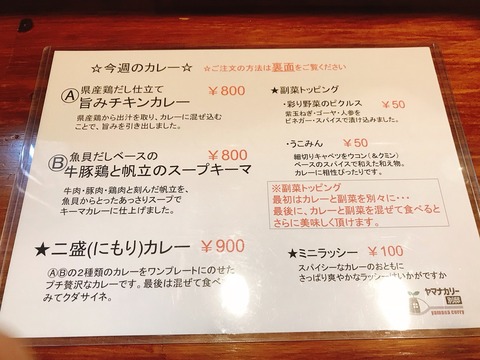 ☆今週のカレー☆
☆ご注文の方法は裏面をご覧ください
Ⓐ 県産鶏だし仕立て ￥800
旨みチキンカレー
県産鶏から出汁を取り、カレーに混ぜ込む
ことで、旨みを引き出しました。
Ⓑ 魚貝だしベースの ￥800
牛豚鶏と帆立のスープキーマ
牛肉・豚肉・鶏肉と刻んだ帆立を、
魚貝からとったあっさりスープで
キーマカレーに仕上げました。
★二盛(にもり)カレー ￥900
ⒶⒷの２種類のカレーをワンプレートにのせた
プチ贅沢なカレーです。最後は混ぜて食べ
みてクダサイネ。
★副菜トッピング
・彩り野菜のピクルス ￥50
紫玉ねぎ・ゴーヤ・人参を
ビネガー・スパイスで漬けこみました。
・うこみん ￥50
細切りキャベツをウコン(＆クミン)
ベースのスパイスで和えた和え物。
カレーに相性ぴったりです。
※副菜トッピング
最初はカレーと副菜を別々に・・・
最後に、カレーと副菜を混ぜて食べると
さらに美味しく頂けます。
★ミニラッシー ￥100
スパイシーなカレーのおともに
さっぱり爽やかなラッシーはいかがですか
ヤマナカリー
別邸
yamana curry